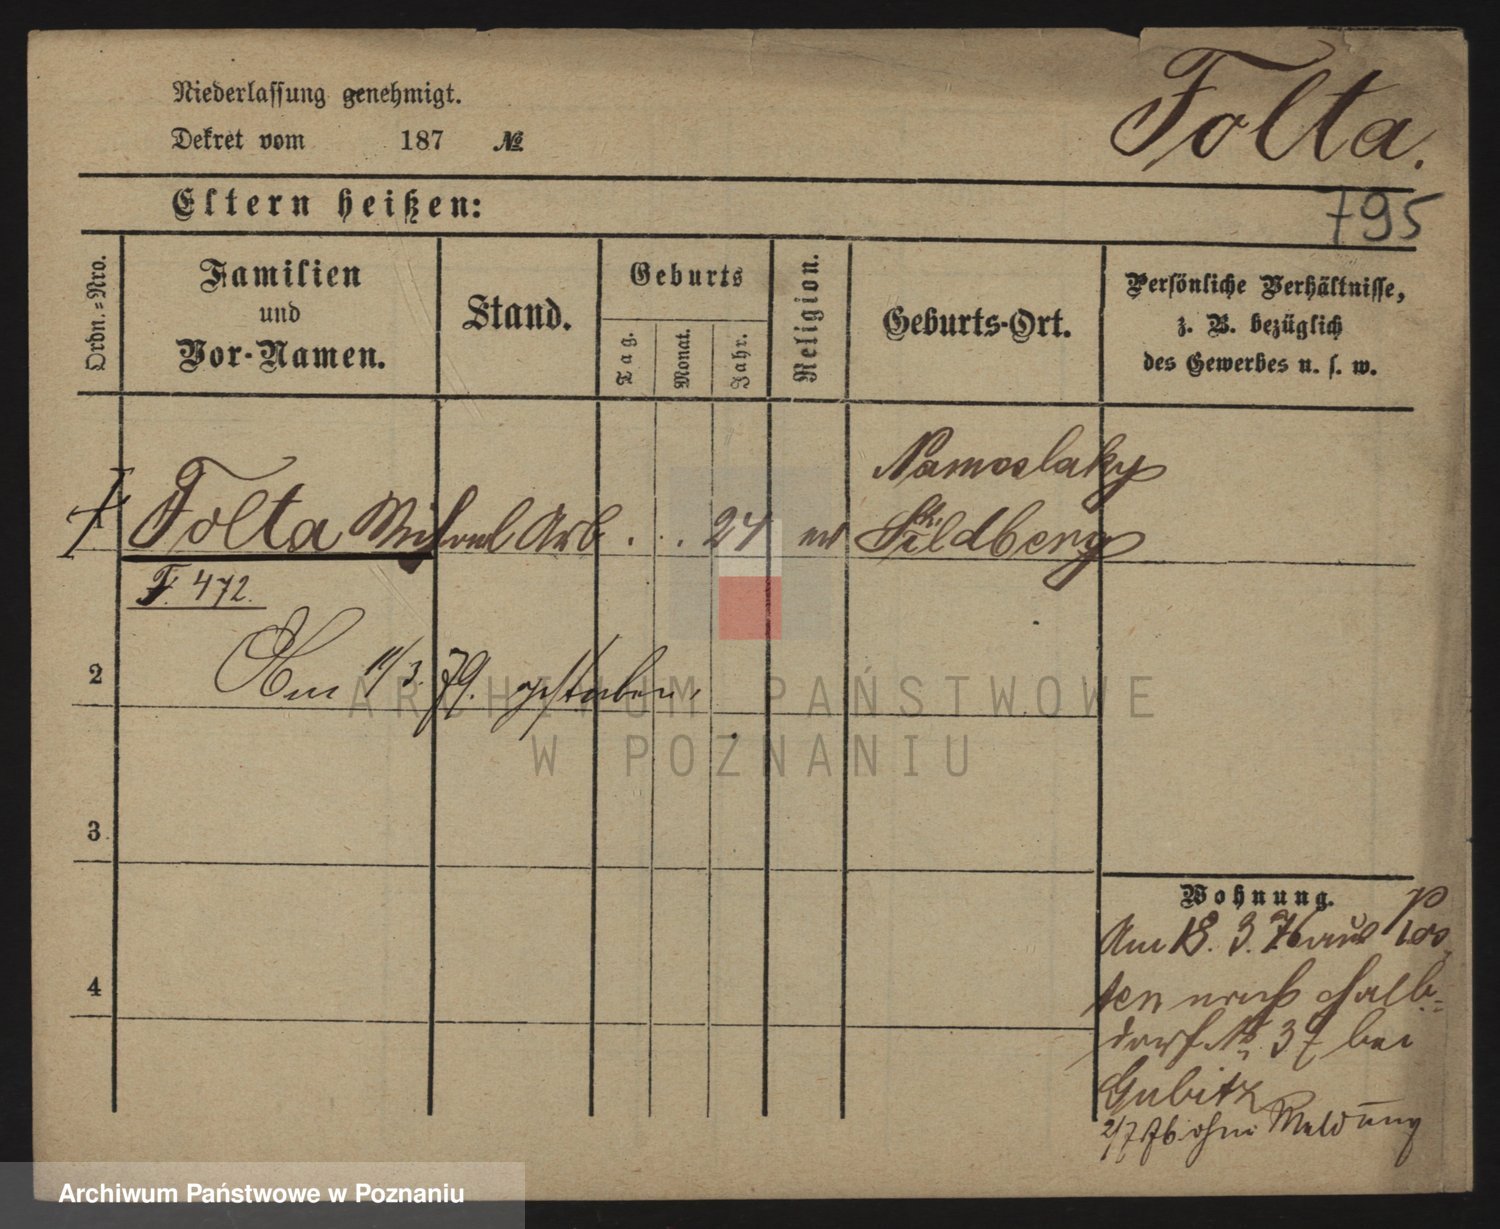 Niederlassung genehmigt.
Dekret vom 187 №
Folta.
Eltern heißen:
795
Ordn.=Nro.
Familien
und
Vor-Namen.
Stand.
Geburts
Tag.
Monat.
Jahr.
Religion.
Geburts-Ort.
Persönliche Verhältnisse,
z. B. bezüglich
des Gewerbes u. s. w.
Folta Michael Arb . . . 24
Kr. Schildberg
F. 472.
2
11/3. 79. gestorben.
3
Wohnung.
Am 18. 3. 76 aus Pos
4
ten nach Halb=
dorf № 37 bei
Gubitz
2/7 76 ohne Meldung
ARCHIWUM PAŃSTWOWE
W POZNANIU
Archiwum Państwowe w Poznaniu